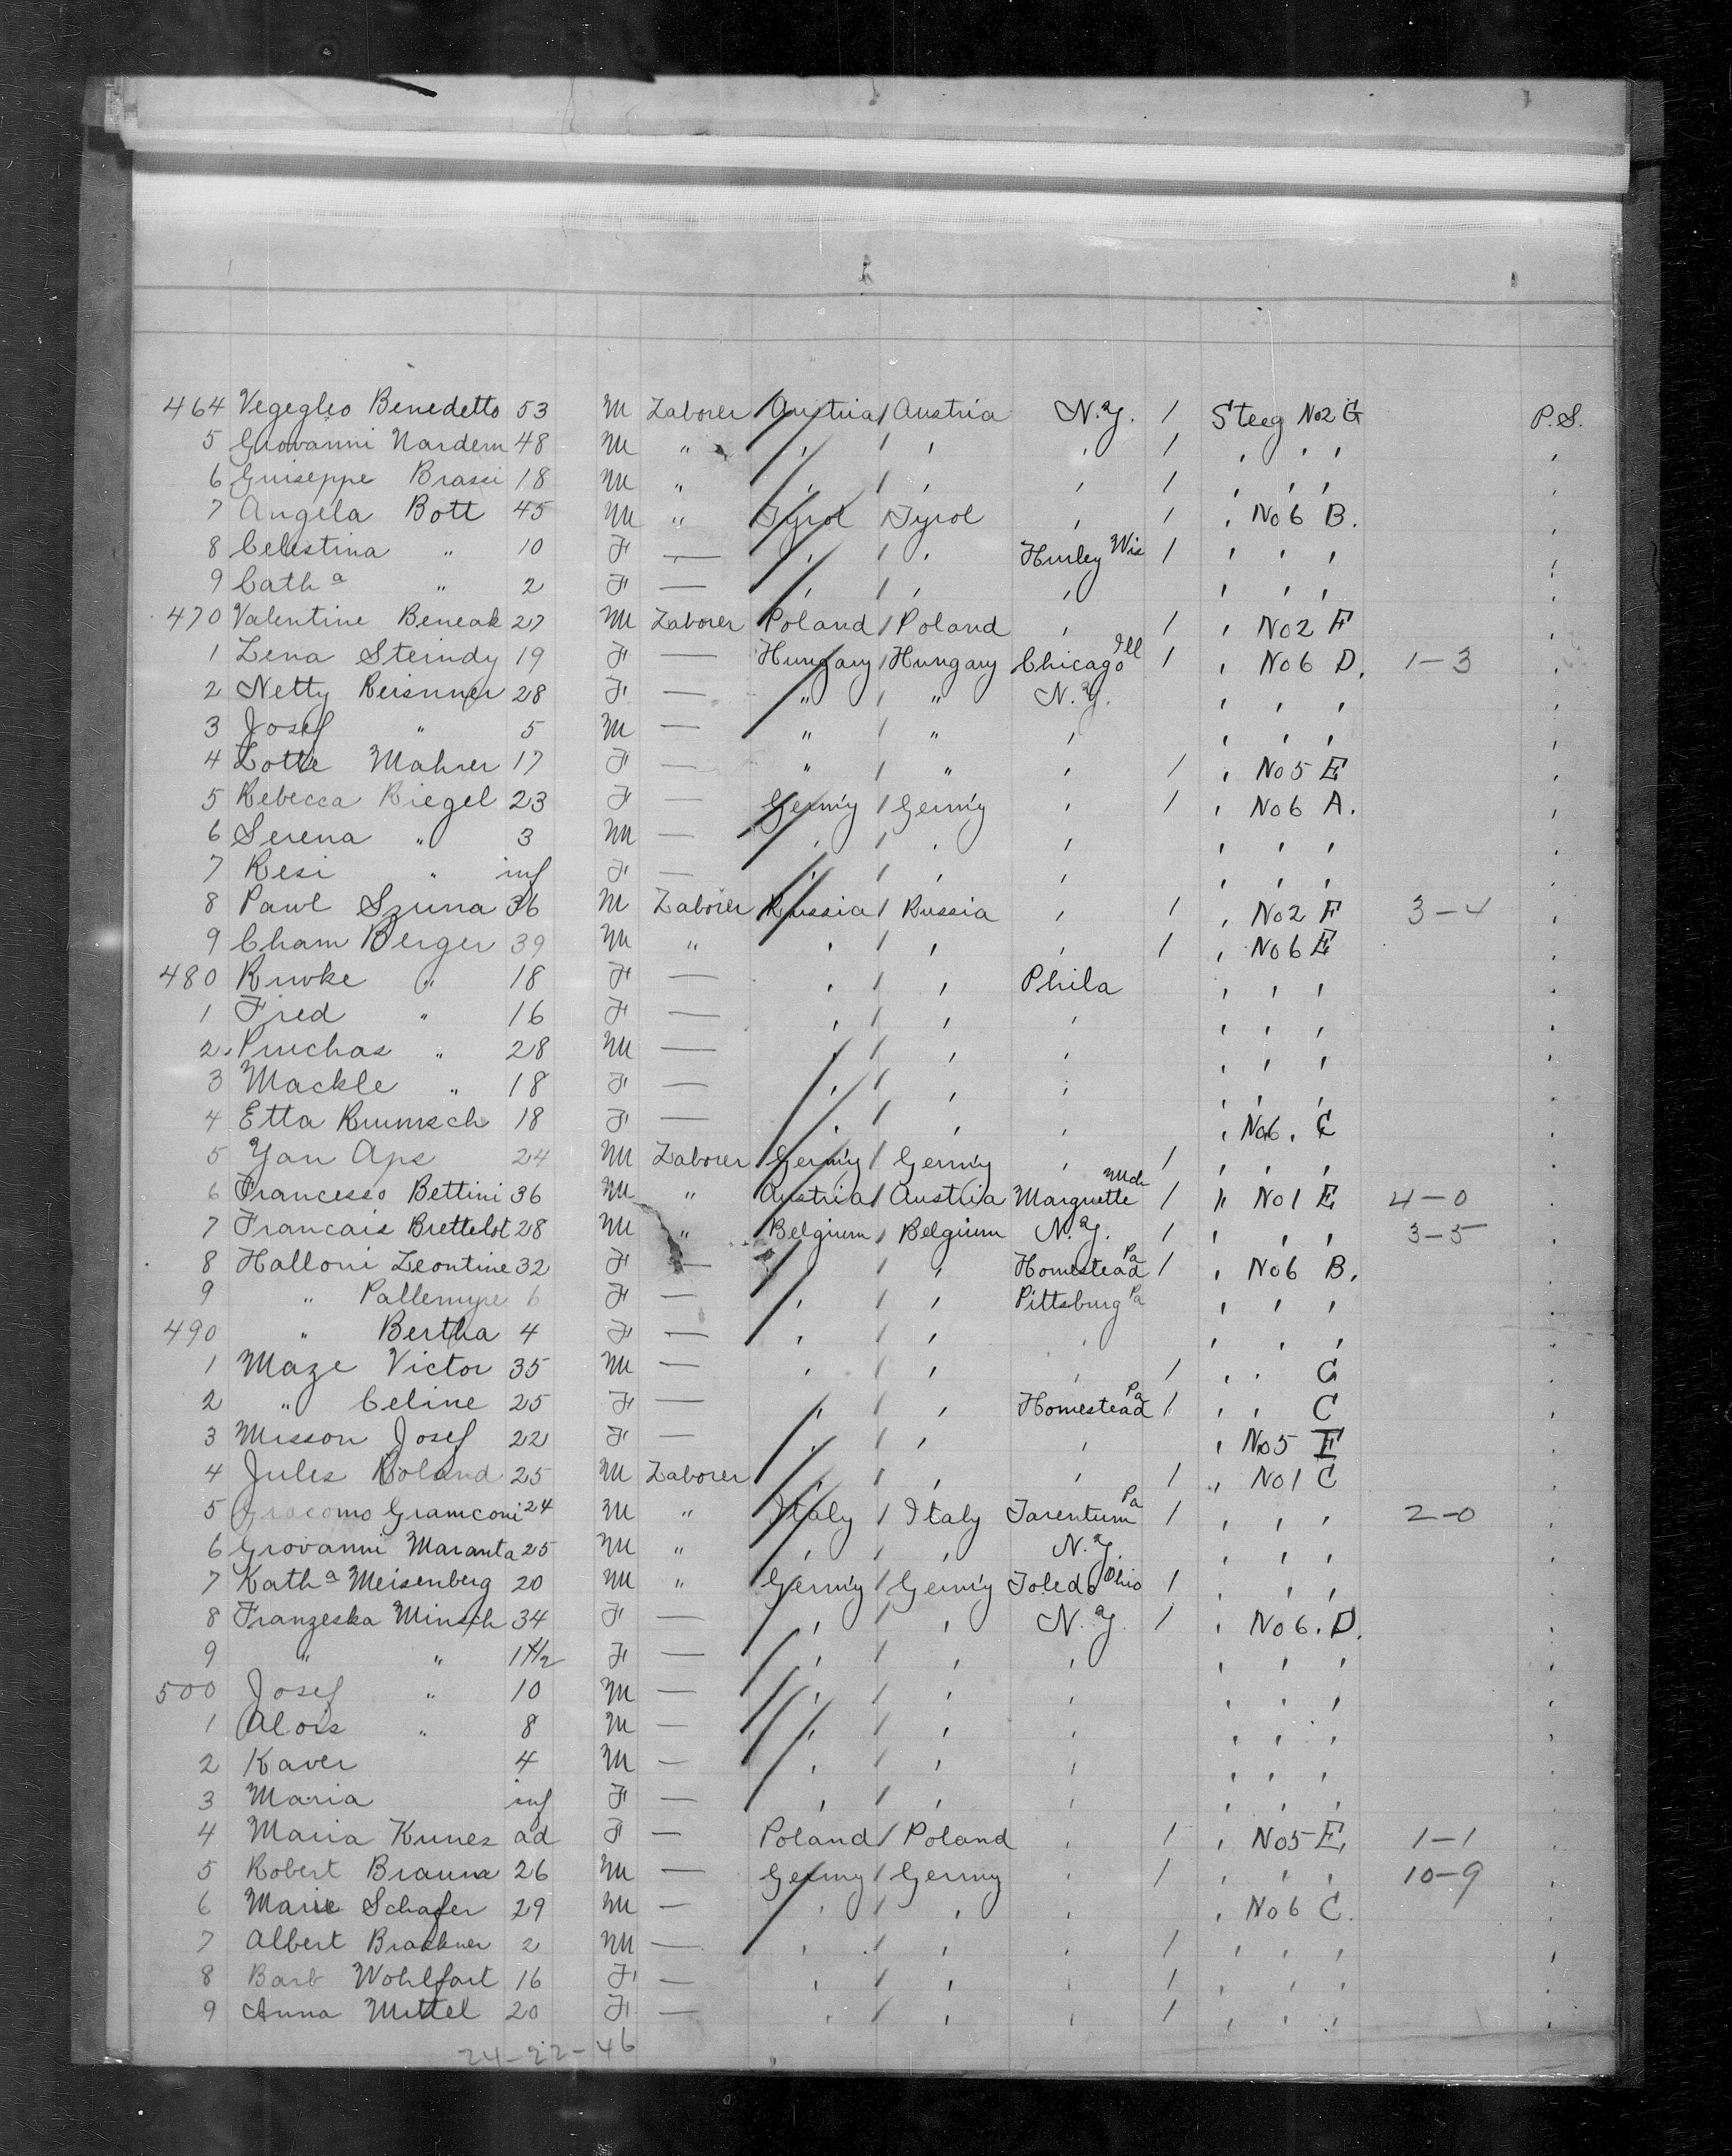 464 Vegeglio Benedetto 53 M Laborer Austria / Austria N.Y. 1 Steeg No2 G P.S.
5 Giovanni Nardem 48 M " , / , , 1 , , , ,
6 Guiseppe Brassi 18 M " , / , , 1 , , , ,
7 Angela Bott 45 M " Tyrol / Tyrol , 1 , No 6 B. ,
8 Celestina " 10 F — , / , Hurley Wis 1 , , , ,
9 Cath a " 2 F — , / , , , , , ,
470 Valentine Beneak 27 M Laborer Poland / Poland , 1 , No2 F ,
1 Lena Steindy 19 F — Hungary / Hungary Chicago Ill 1 , No 6 D. 1-3 ,
2 Netty Reisnner 28 F — " / " N.Y. , , , ,
3 Josef " 5 M — " / " , , , , ,
4 Lotte Mahrer 17 F — " / " , 1 , No 5 E ,
5 Rebecca Riegel 23 F — Germ'y / Germ'y , 1 , No 6 A. ,
6 Serena " 3 M — , / , , , , , ,
7 Resi " inf F — , / , , , , , ,
8 Pawl Szuna 36 M Laborer Russia / Russia , 1 , No2 F 3-4 ,
9 Cham Berger 39 M " , / , , 1 , No 6 E ,
480 Riwke " 18 F — , / , Phila , , , ,
1 Fred " 16 F — , / , , , , , ,
2 Pinchas " 28 M — , / , , , , , ,
3 Mackle " 18 F — , / , , , , , ,
4 Etta 18 F — , / , , , No 6 . C ,
5 Yan Aps 24 M Laborer Germ'y / Germ'y , 1 , , , ,
6 Francesco Bettini 36 M " Austria / Austria Marquette Mch 1 " No 1 E 4-0 ,
7 Francais Brettelot 28 M " Belgium / Belgium N.Y. 1 , , , 3-5 ,
8 Halloni Leontine 32 F — , / , Homestead Pa 1 , No 6 B. ,
9 " 6 F — , / , Pittsburg Pa , , , ,
490 " Bertha 4 F — , / , , , , , ,
1 Maze Victor 35 M — , / , , 1 , , G ,
2 " Celine 25 F — , / , Homestead Pa 1 , , C ,
3 Misson Josef 22 F — , / , , , No 5 E ,
4 Jules Roland 25 M Laborer , / , , 1 " No 1 C ,
5 Giacomo Gramconi 24 M " Italy / Italy Tarentum Pa 1 , , , 2-0 ,
6 Giovanni Maranta 25 M " , / , N.Y. , , , ,
7 Kath a Meisenberg 20 M " Germ'y / Germ'y Toledo Ohio 1 , , , ,
8 Franzeska Minsch 34 F — , / , N.Y. 1 , No 6. D. ,
9 " " 11/2 F — , / , , , , , ,
500 Josef " 10 M — , / , , , , , ,
1 Alois " 8 M — , / , , , , , ,
2 Xaver 4 M — , / , , , , , ,
3 Maria inf F — , / , , , , , ,
4 Maria Kunes ad F — Poland / Poland , 1 , No 5 E 1-1 ,
5 Robert Brauna 26 M — Germy / Germy , 1 , , , 10-9 ,
6 Marie Schafer 29 M — , / , , , No 6 C. ,
7 Albert Brackner 2 M — , / , , 1 , , , ,
8 Barb Wohlfart 16 F — , / , , 1 , , , ,
9 Anna Mittel 20 F — , / , , 1 , , , ,
24-22-46